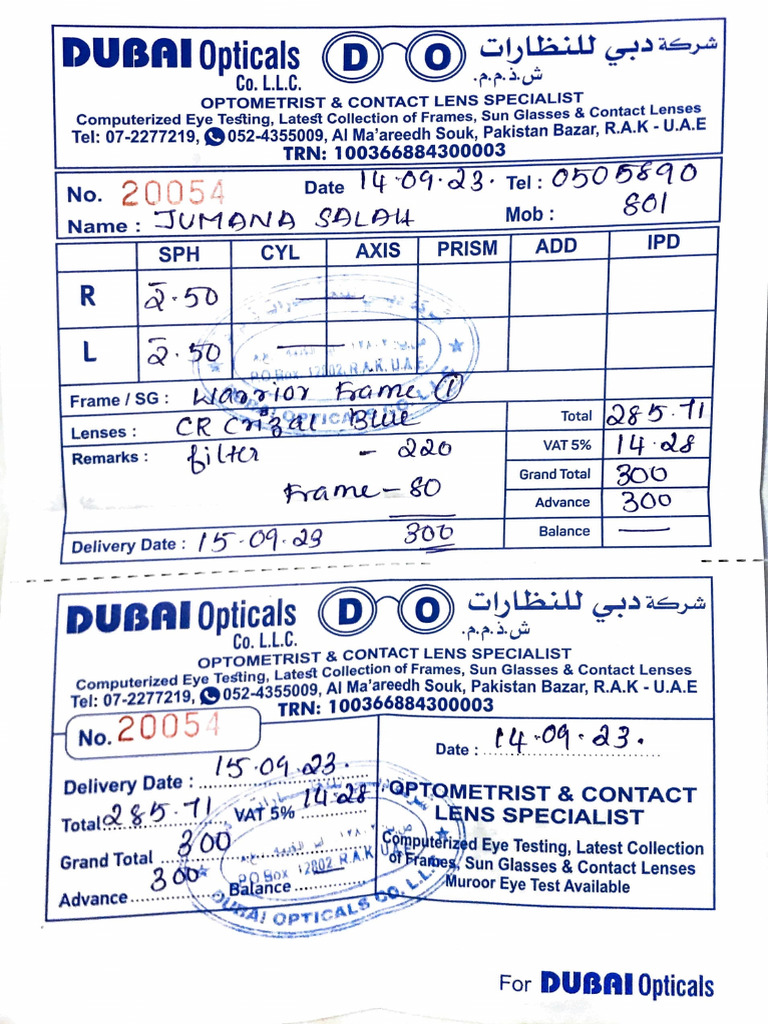 DUBAI Opticals Co. L.L.C. D O شركة دبي للنظارات ش.ذ.م.م.
OPTOMETRIST & CONTACT LENS SPECIALIST
Computerized Eye Testing, Latest Collection of Frames, Sun Glasses & Contact Lenses
Tel: 07-2277219, 052-4355009, Al Ma'areedh Souk, Pakistan Bazar, R.A.K - U.A.E
TRN: 100366884300003
No. 20054 Date 14.09.23. Tel : 0505890
Name : JUMANA SALAH Mob : 801
SPH CYL AXIS PRISM ADD IPD
R -2.50 —
L -2.50 —
P.O.Box 12802, R.A.K, U.A.E.
DUBAI OPTICALS CO. L.L.C.
Frame / SG : Warrior Frame 1
Lenses : CR Crizal Blue Total 285.71
Remarks : filter - 220 VAT 5% 14.28
Grand Total 300
Frame - 80 Advance 300
Delivery Date : 15.09.23 300 Balance —
DUBAI Opticals Co. L.L.C. D O شركة دبي للنظارات ش.ذ.م.م.
OPTOMETRIST & CONTACT LENS SPECIALIST
Computerized Eye Testing, Latest Collection of Frames, Sun Glasses & Contact Lenses
Tel: 07-2277219, 052-4355009, Al Ma'areedh Souk, Pakistan Bazar, R.A.K - U.A.E
TRN: 100366884300003
No. 20054 Date : 14.09.23.
Delivery Date : 15.09.23.
Total 285.71 VAT 5% 14.28
Grand Total 300
Advance 300 Balance —
P.O.Box 12802, R.A.K, U.A.E.
DUBAI OPTICALS CO. L.L.C.
OPTOMETRIST & CONTACT
LENS SPECIALIST
Computerized Eye Testing, Latest Collection
of Frames, Sun Glasses & Contact Lenses
Muroor Eye Test Available
For DUBAI Opticals